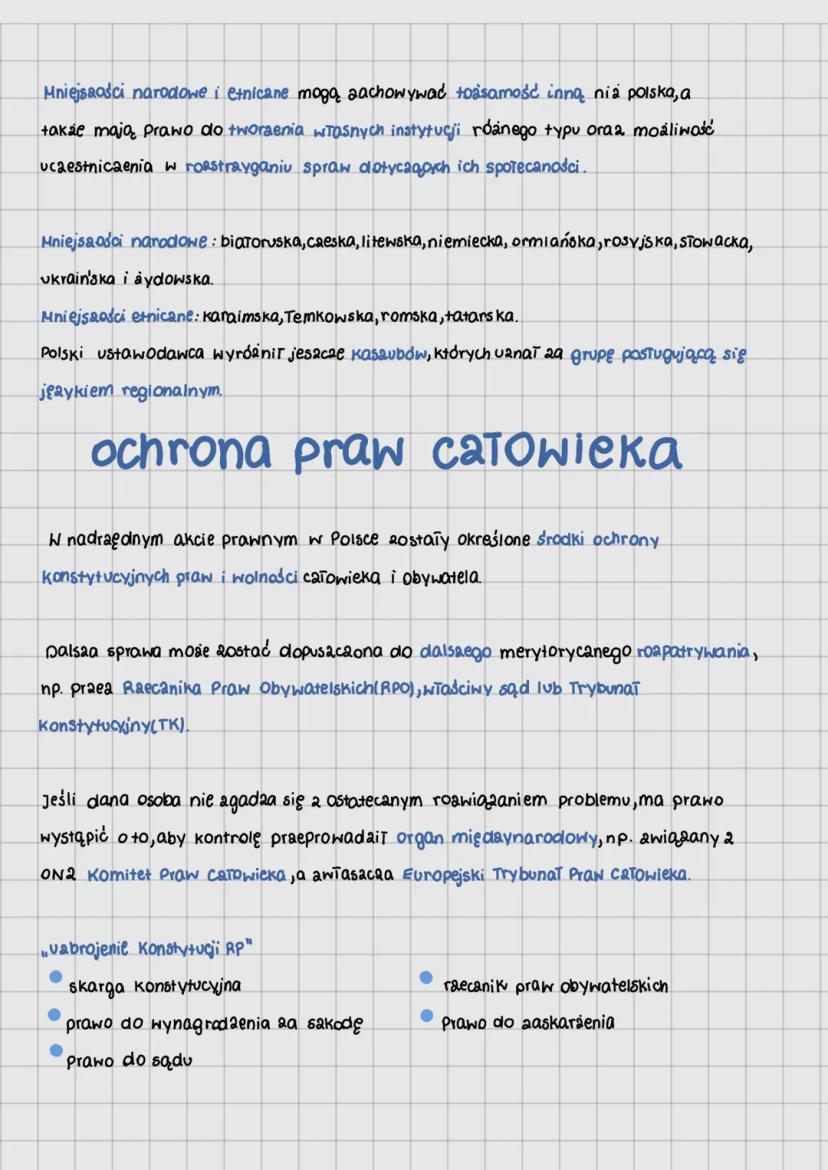 Mniejszości narodowe i etniczne mogą zachowywać tożsamość inną niż polska,a
także mają prawo do tworzenia własnych instytucji różnego typu oraz możliwość
uczestniczenia w rozstrzyganiu spraw dotyczących ich społeczności.
Mniejszości narodowe: białoruska,czeska,litewska,niemiecka, ormiańska,rosyjska,słowacka,
ukraińska i żydowska.
Mniejszości etniczne: karaimska,łemkowska,romska,tatarska.
Polski ustawodawca wyróżnił jeszcze kaszubów,których uznał za grupę posługującą się
językiem regionalnym.
ochrona praw człowieka
W nadrzędnym akcie prawnym w Polsce zostały określone środki ochrony
konstytucyjnych praw i wolności człowieka i obywatela.
Dalsza sprawa może zostać dopuszczona do dalszego merytorycznego rozpatrywania,
np. przez Rzecznika Praw Obywatelskich(RPO),właściwy sąd lub Trybunał
Konstytucyjny(TK).
Jeśli dana osoba nie zgadza się z ostatecznym rozwiązaniem problemu,ma prawo
wystąpić o to,aby kontrolę przeprowadził organ międzynarodowy,np. związany z
ONZ Komitet Praw Człowieka,a zwłaszcza Europejski Trybunał Praw Człowieka.
„uzbrojenie Konstytucji RP"
skarga konstytucyjna
rzecznik praw obywatelskich
prawo do wynagrodzenia za szkodę
prawo do zaskarżenia
prawo do sądu